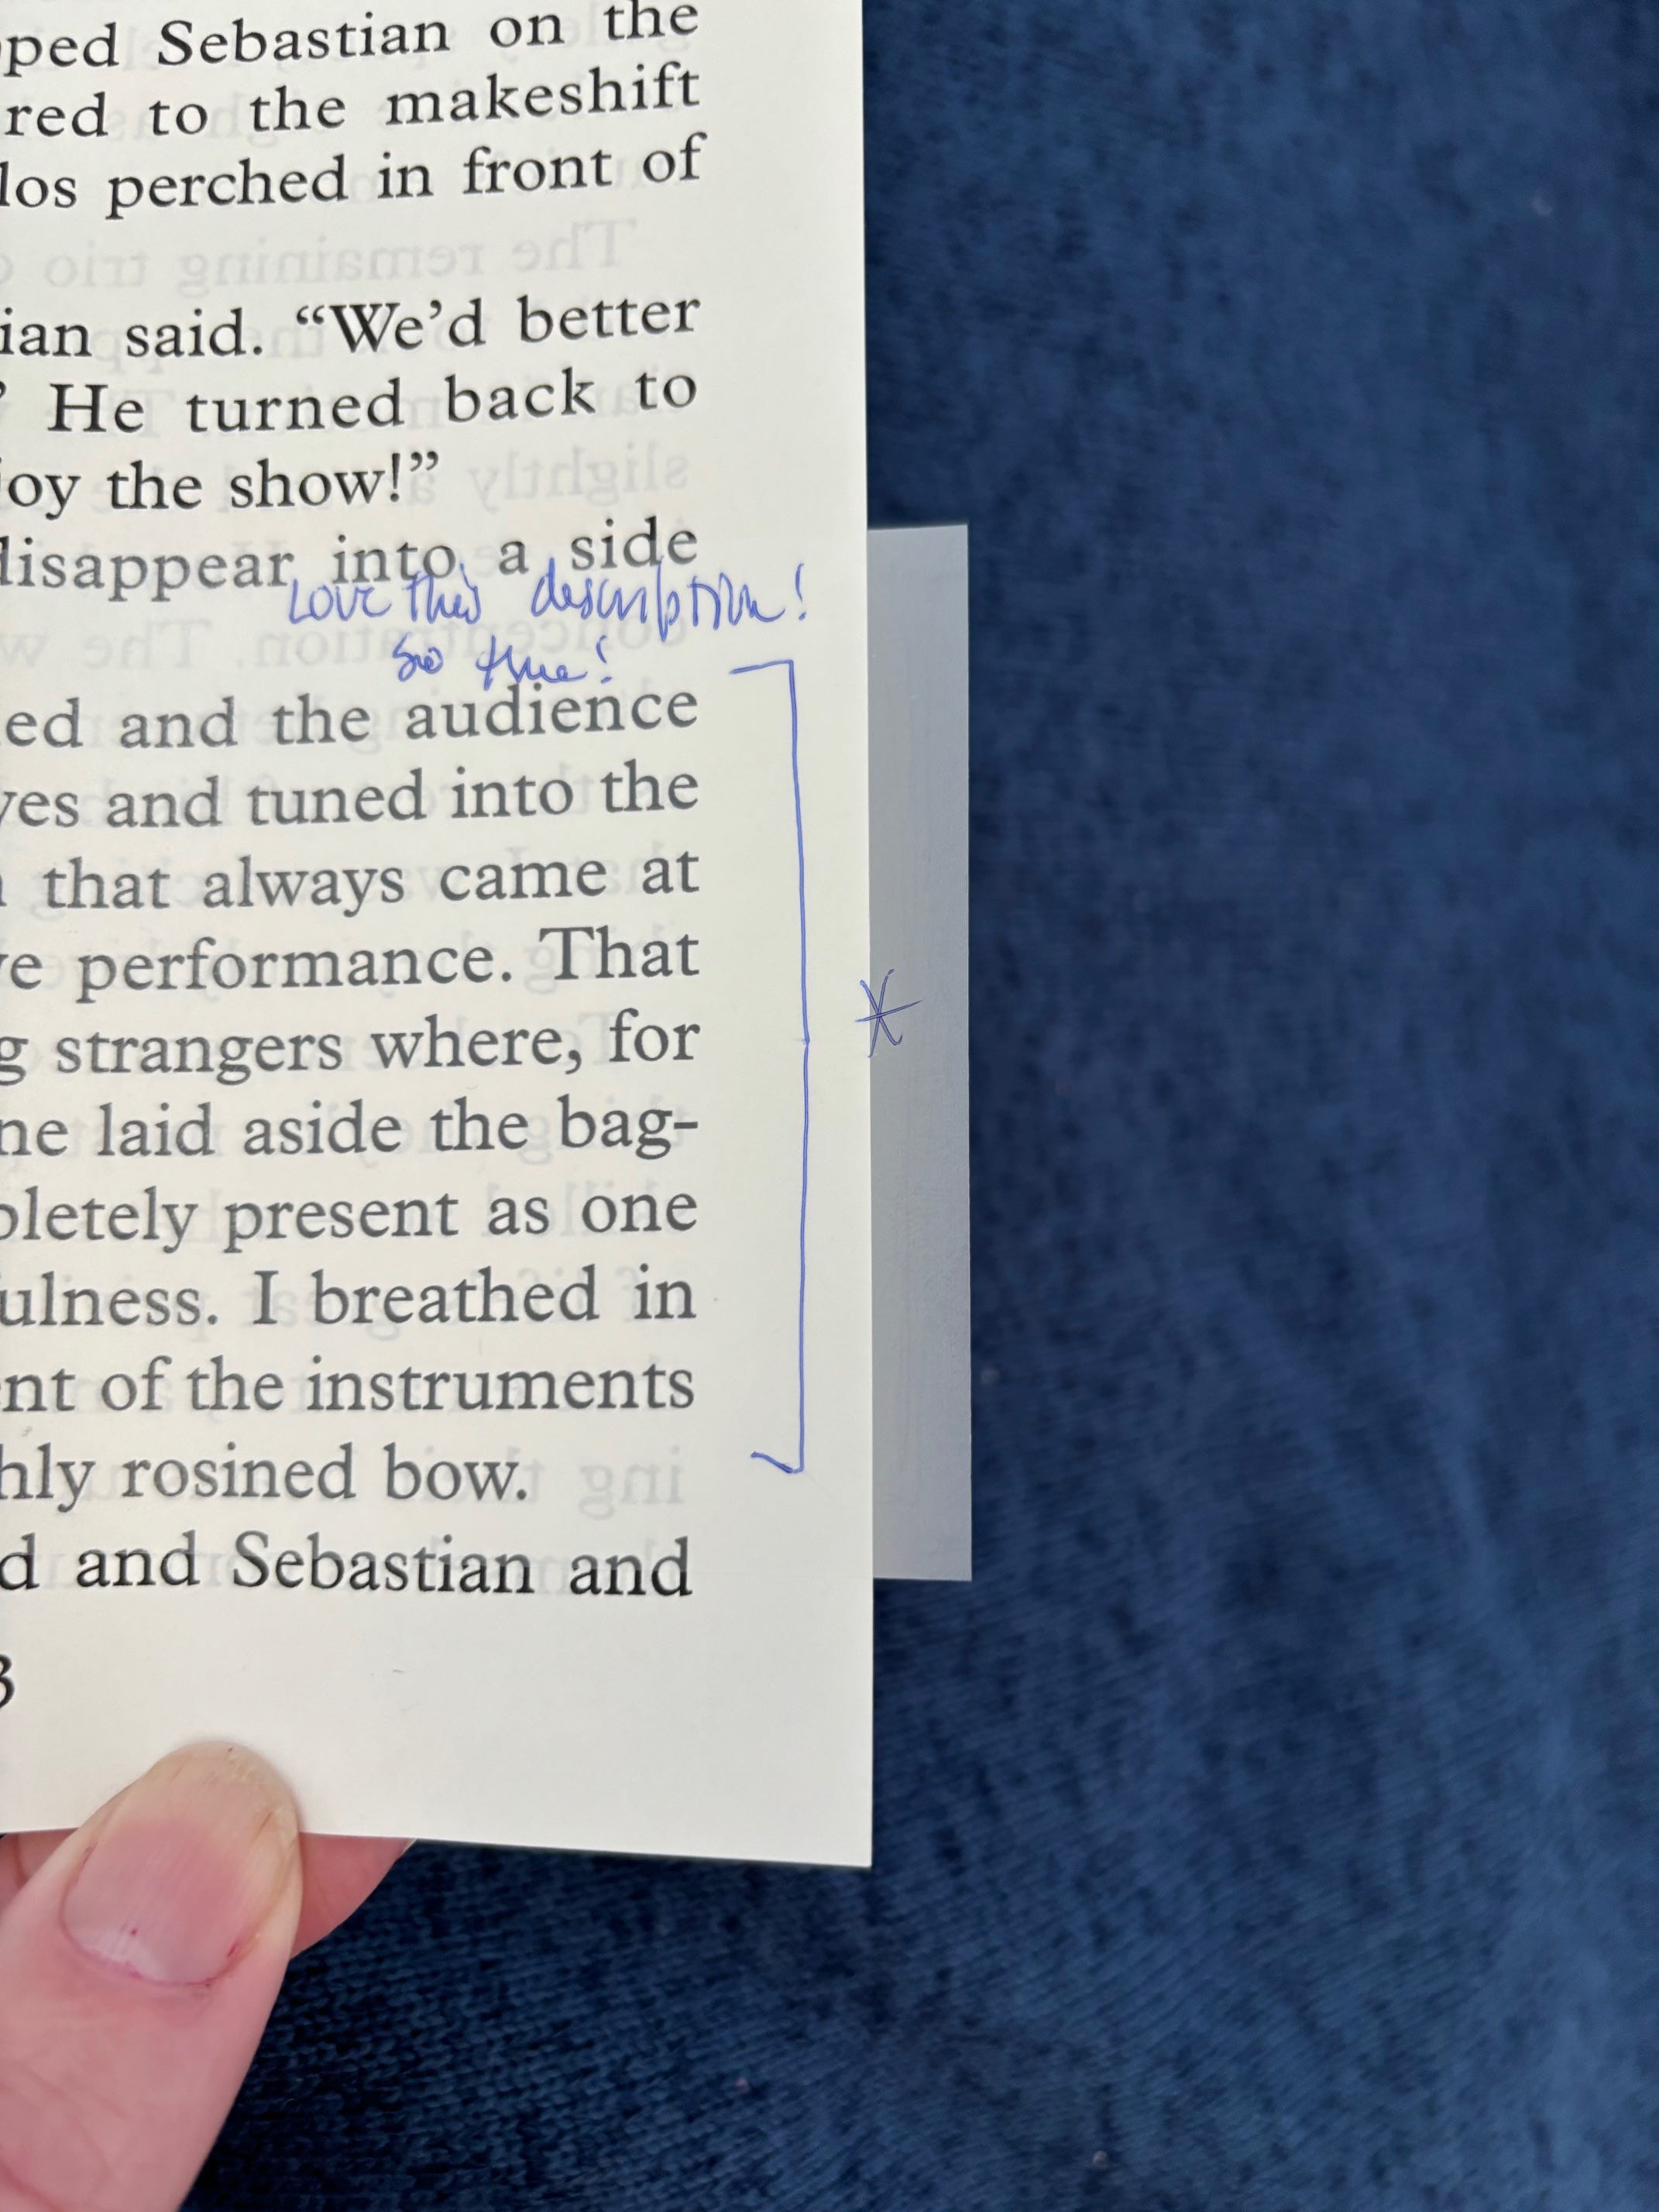 ped Sebastian on the
red to the makeshift
los perched in front of
ian said. “We’d better
” He turned back to
joy the show!”
disappear into a side
Love this description!
so true!
ed and the audience
yes and tuned into the
that always came at
ve performance. That
g strangers where, for
ne laid aside the bag-
pletely present as one
ulness. I breathed in
nt of the instruments
hly rosined bow.
d and Sebastian and
3